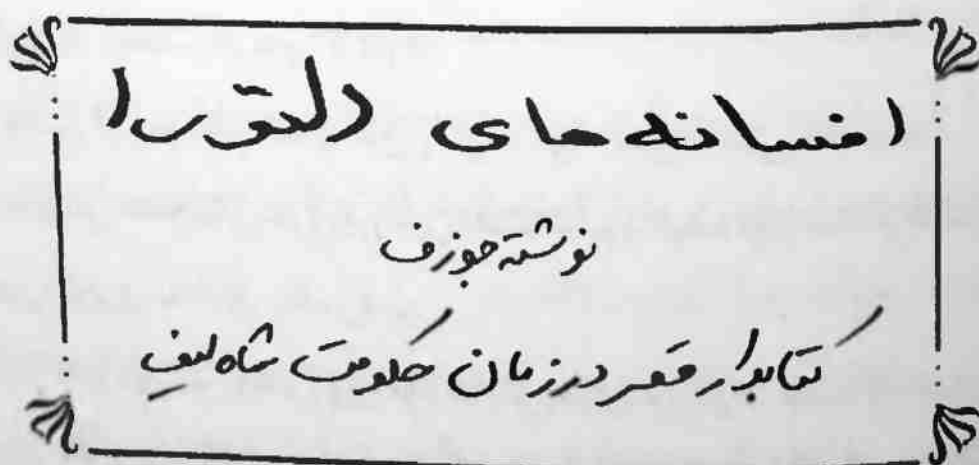 افسانه های دلتورا
نوشته جوزف
کتابدار قصر در زمان حکومت شاه لیف